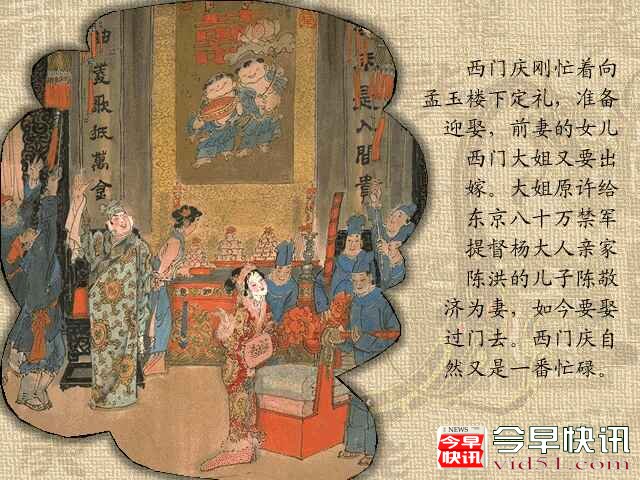 西门庆刚忙着向
孟玉楼下定礼，准备
迎娶，前妻的女儿
西门大姐又要出
嫁。大姐原许给
东京八十万禁军
提督杨大人亲家
陈洪的儿子陈敬
济为妻，如今要娶
过门去。西门庆自
然又是一番忙碌。
菱歌抵萬金
是人間貴
NEWS
今早
快讯
今早快讯
vid51.com